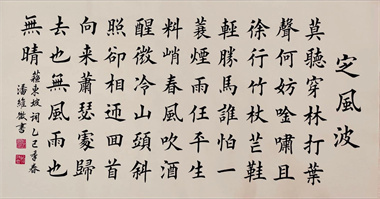 定風波
莫聽穿林打葉
聲何妨唫嘯且
徐行竹杖芒鞋
輕勝馬誰怕一
蓑煙雨任平生
料峭春風吹酒
醒微冷山頭斜
照卻相迎回首
向來蕭瑟處歸
去也無風雨也
無晴
蘇東坡詞乙巳年春
潘維書